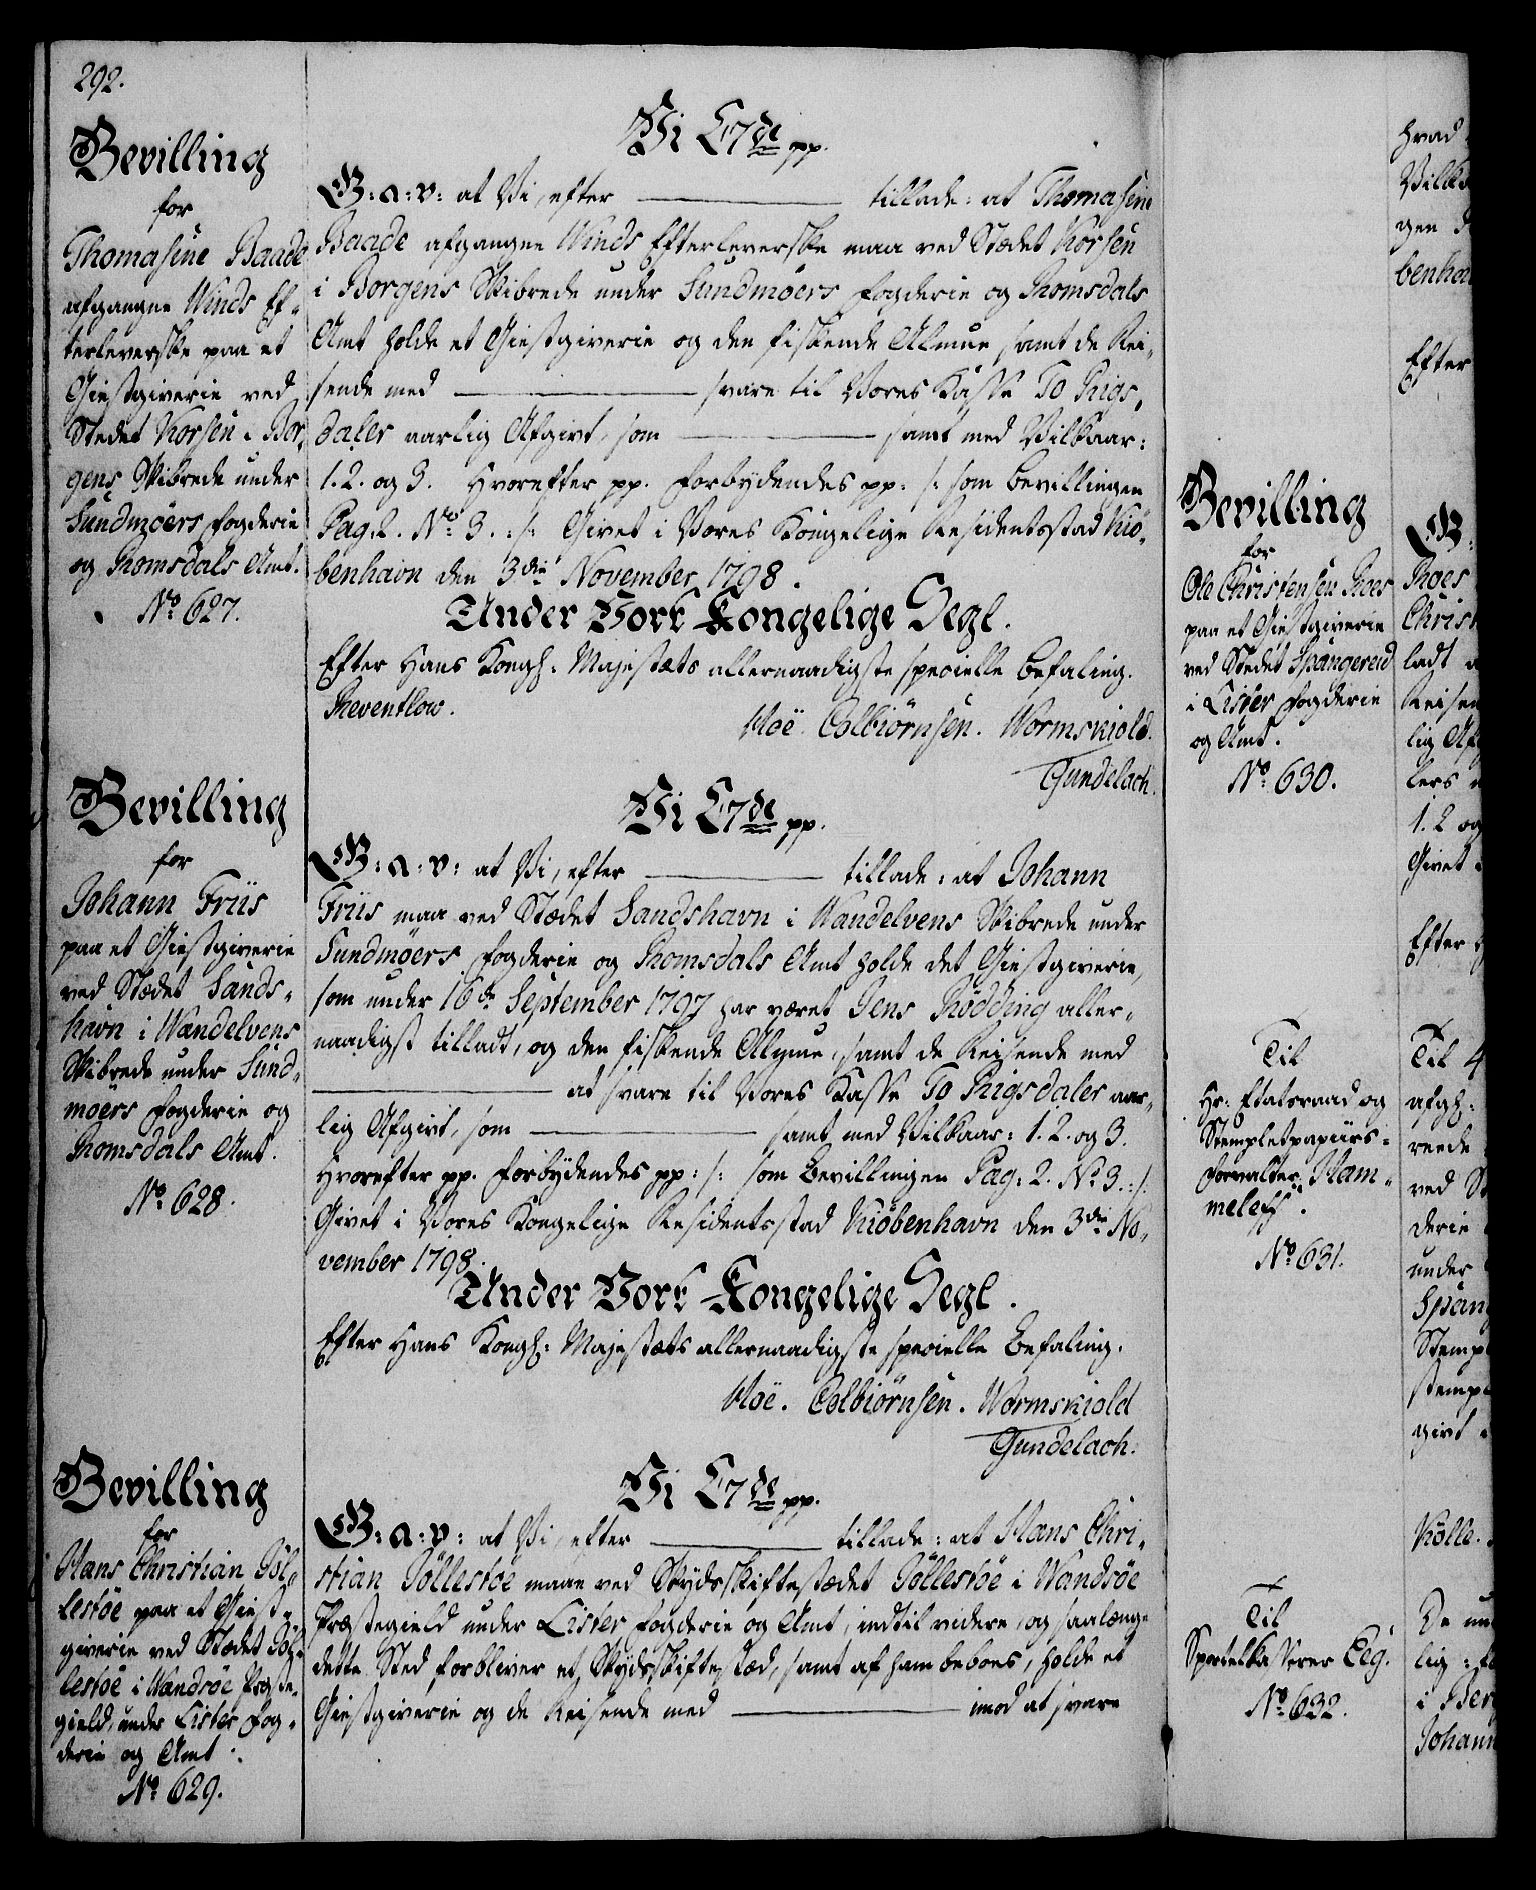 292.
Bevilling
for
Thomasine Baade
afgangne Winds Ef-
terleverske paa et
Giestgiverie ved
Stedet Korsen i Bor,
gens Skibrede under
Sundmöers Fogderie
og Romsdals Amt.
No 627.
Vi C7de pp.
G: a: v: at Vi, efter ——— tillade: at Thomasine
Baade afgangne Winds Efterleverske maa ved Stædet Korsen
i Borgens Skibrede under Sundmöers Fogderie og Romsdals
Amt holde et Giestgiverie og den fiskende Almue samt de Rei,
sende med ——— svare til Vores Kasse To Rigs,
daler aarlig Afgivt, som ——— samt med Vilkaar:
1. 2. og 3. Hvorefter pp. Forbydendes pp: /: som Bevillingen
Pag: 2. No 3. :/: Givet i Vores Kongelige Residentsstad Kiö,
benhavn den 3die November 1798.
Under Vort Kongelige Segl.
Efter Hans Kongl: Majestæts allernaadigste specielle Befaling.
Reventlow.
Hoë. Colbiörnsen. Wormskiold.
Gundelach.
Bevilling
for
Johann Friis
paa et Giestgiverie
ved Stædet Sands-
havn i Wandelvens
Skibrede under Sund,
möers Fogderie og
Romsdals Amt.
No 628.
Vi C7de pp.
G: a: v: at Vi, efter ——— tillade: at Johann
Friis maa ved Stædet Sandshavn i Wandelvens Skibrede under
Sundmöers Fogderie og Romsdals Amt holde det Giestgiverie,
som under 16de September 1797 har været Jens Rödding aller,
naadigst tilladt, og den fiskende Almue, samt de Reisende med
——— at svare til Vores Kasse To Rigsdaler aar,
lig Afgivt, som ——— samt med Vilkaar: 1. 2. og 3.
Hvorefter pp. Forbydendes pp: /: som Bevillingen Pag: 2. No 3. :/:
Givet i Vores Kongelige Residentsstad Kiöbenhavn den 3die No,
vember 1798.
Under Vort Kongelige Segl.
Efter Hans Kongl: Majestæts allernaadigste specielle Befaling.
Hoë. Colbiörnsen. Wormskiold
Gundelach.
Bevilling
for
Hans Christian Jöl,
lestöe paa et Giest,
giverie ved Stædet Jöl,
lestöe i Wandsöe Præste,
gield, under Lister Fog-
derie og Amt.
No 629.
Vi C7de pp.
G: a: v: at Vi, efter ——— tillade: at Hans Chri-
stian Jöllestöe maae ved Skydsskiftestædet Jöllestöe i Wandsöe
Præstegield under Lister Fogderie og Amt, indtil videre, og saalænge
dette Sted forbliver et Skydsskiftestæd, samt af ham beboes, holde et
Giestgiverie og de Reisende med ——— imod at svare
Bevilling
for
Ole Christensen Roes
paa et Giestgiverie
ved Stedet Spangereid
i Lister Fogderie
og Amt.
No 630.
Til
Hr: Etatsraad og
Stempletpapiirs-
forvalter Ham-
meleff.
No 631.
Til
Sportelkasserer Eeg.
No 632.
hvad
gen
benha
Efter
G:
Roes
Christ
ladt
Reisen
lig Af
lers
1. 2 og
Givet
Efter
Til
afgl:
ved
derie
under
Spang
Stemp
stemp
givt
Kölle.
De
lig
i Ber
Johann